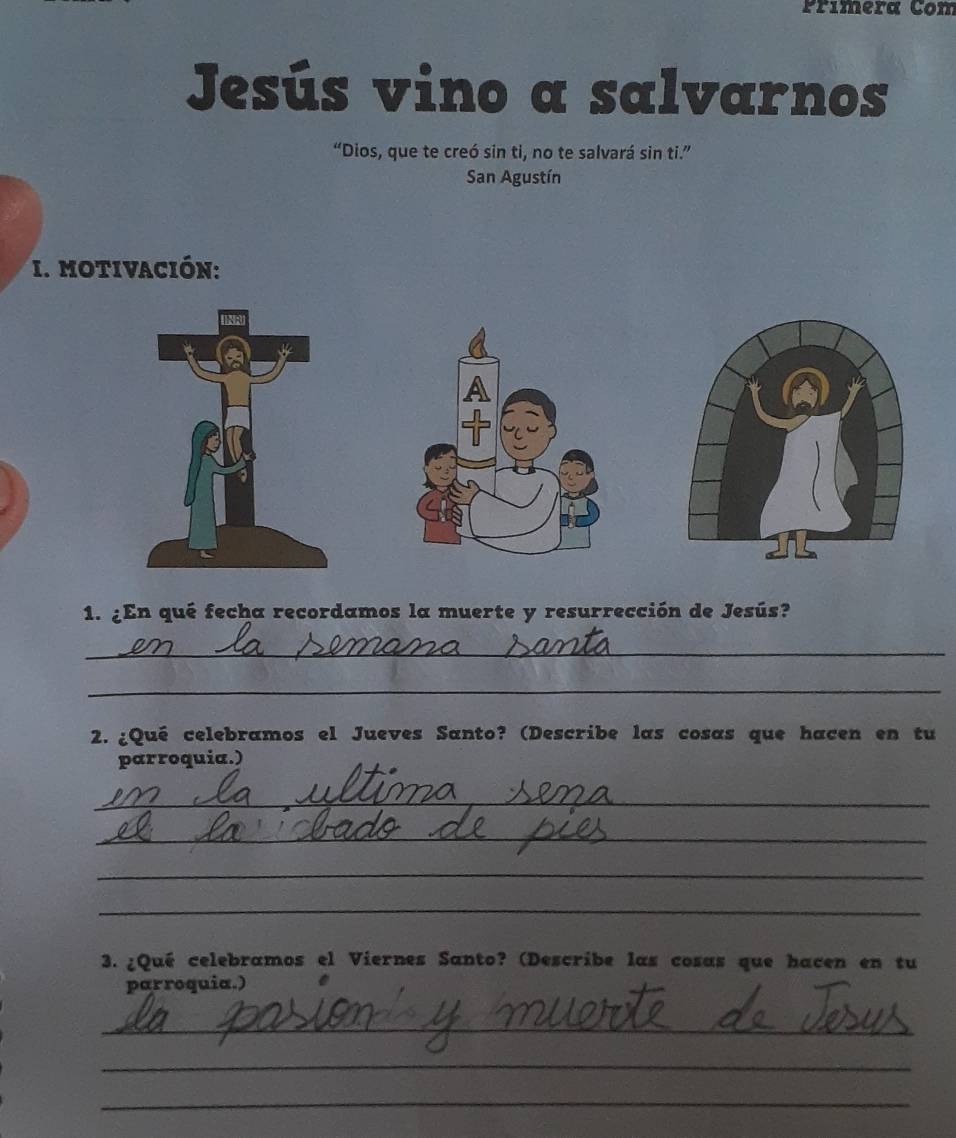 Primera Com
Jesús vino a salvarnos
“Dios, que te creó sin ti, no te salvará sin ti.”
San Agustín
I. MOTIVACIÓN:
INRI
A
1. ¿En qué fecha recordamos la muerte y resurrección de Jesús?
en la semana santa
2. ¿Qué celebramos el Jueves Santo? (Describe las cosas que hacen en tu
parroquia.)
en la ultima sena
el la bado de pies
3. ¿Qué celebramos el Viernes Santo? (Describe las cosas que hacen en tu
parroquia.)
la pasion y muerte de Jesus